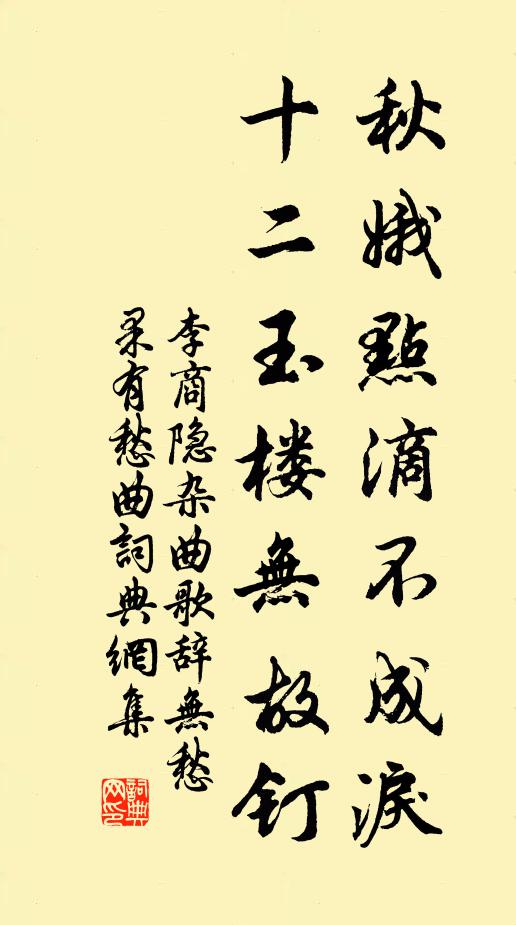 秋娥點滴不成淚
十二玉楼無故釘
李商隐杂曲歌辞無愁
果有愁曲詞典網集
詞典
网印